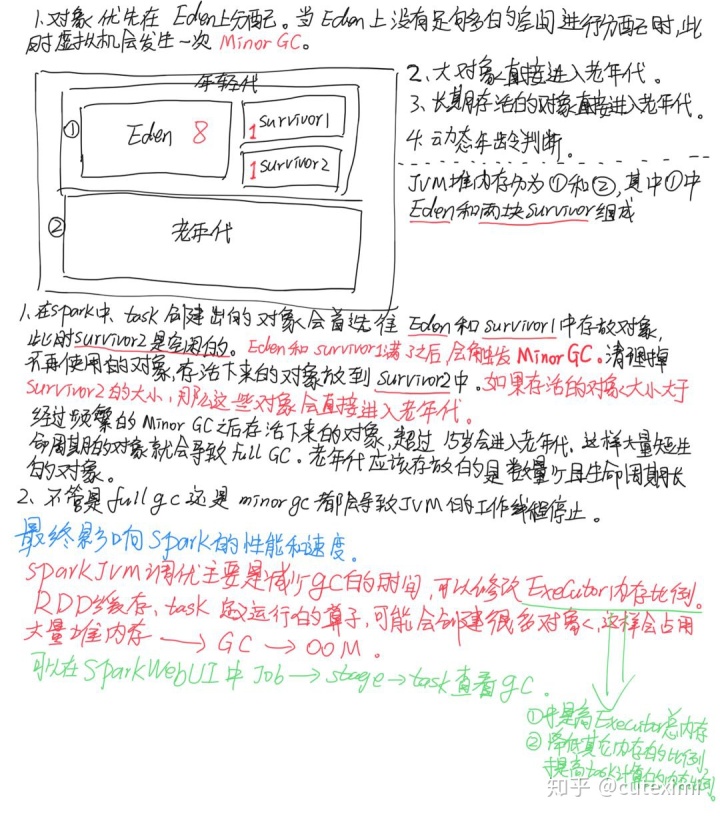 1.对象优先在 Eden上分配。当 Eden上没有足够的空间进行分配时,此
时虚拟机会发生一次 Minor GC。
年轻代
① Eden 8
1 survivor1
1 survivor2
② 老年代
2、大对象直接进入老年代。
3、长期存活的对象直接进入老年代。
4. 动态年龄判断。
JVM堆内存分为①和②,其中①中
Eden和两块survivor组成
1.在spark中,task创建出的对象会首先往 Eden和survivor1中存放对象,
此时survivor2是空闲的。Eden和survivor1满了之后,会触发MinorGC。清理掉
不再使用的对象,存活下来的对象放到survivor2中。如果存活的对象大小大于
survivor2的大小,那么这些对象会直接进入老年代。
经过频繁的Minor GC之后存活下来的对象,超过15岁会进入老年代,这样大量短生
命周期的对象就会导致full GC。老年代应该存放的是数量少且生命周期长
的对象。
2、不管是full gc还是minor gc都会导致JVM的工作线程停止。
最终影响Spark的性能和速度。
SparkJVM调优主要是减少gc的时间,可以修改Executor内存比例。
RDD缓存,task 运行的算子,可能会创建很多对象,这样会占用
大量堆内存 → GC → OOM。
可以在SparkWebUI中Job→stage→task查看gc。
①提高Executor总内存
②降低其它内存的比例,
提高task计算的内存比例。
知乎 @cuteximi